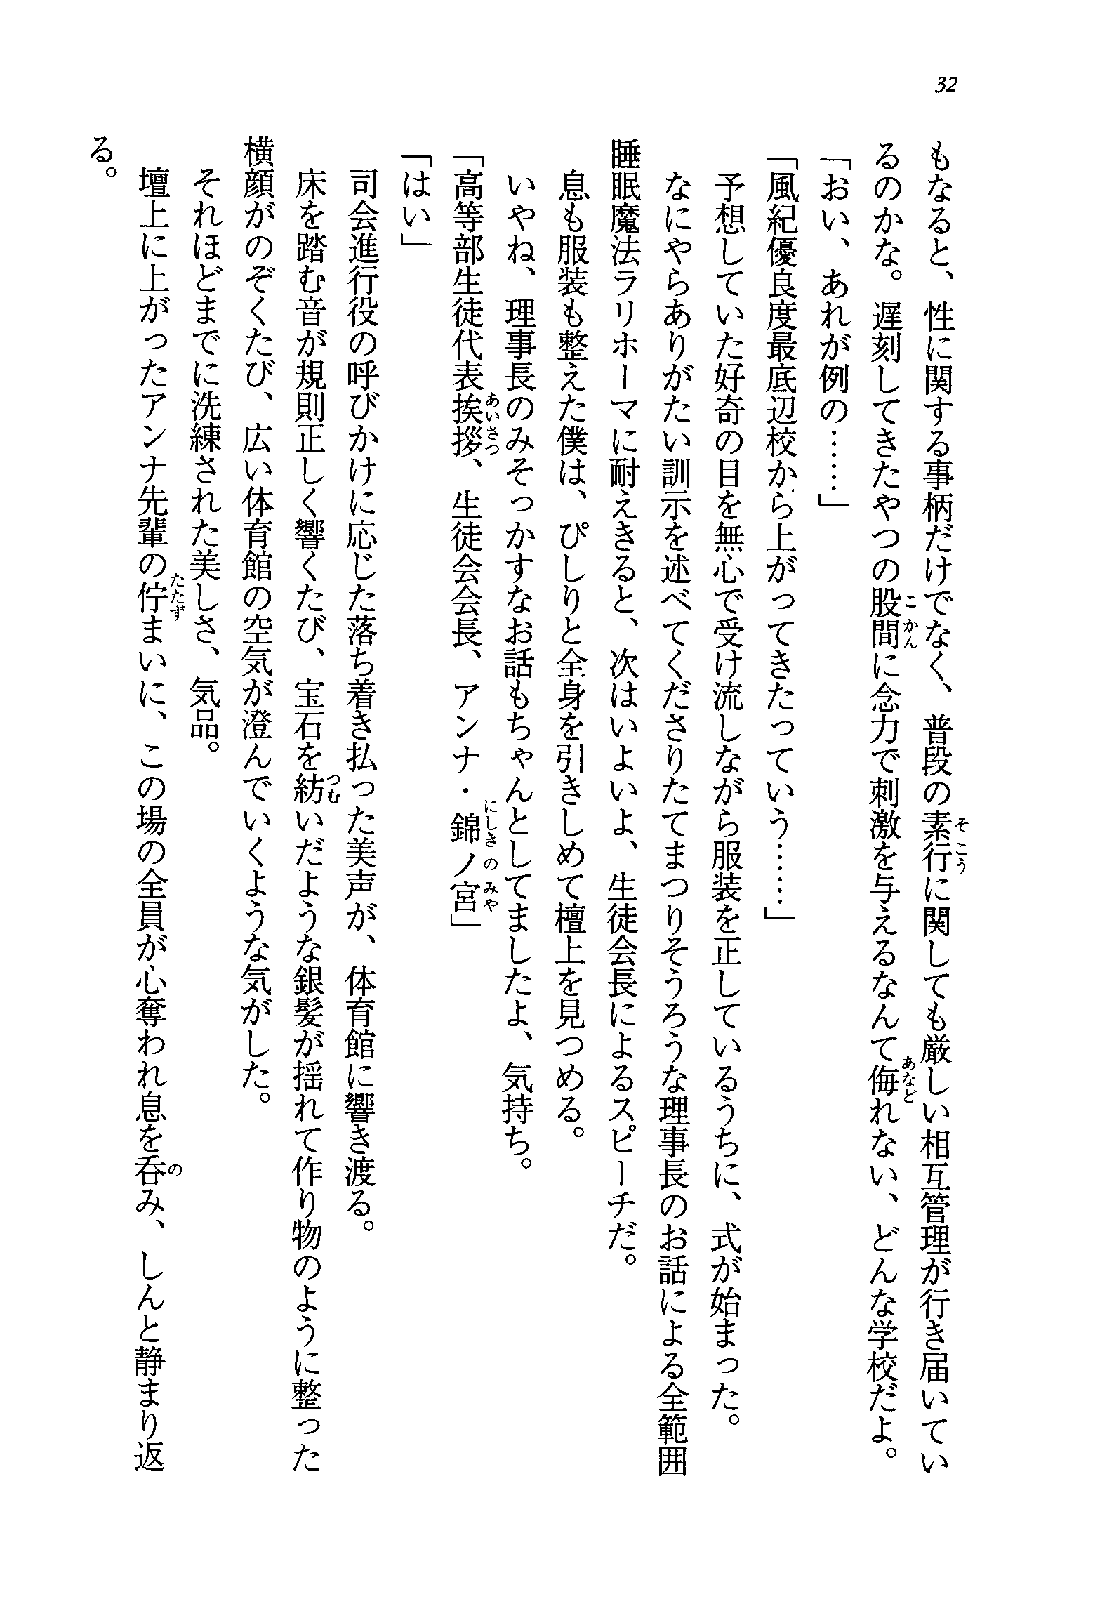 32
もなると、性に関する事柄だけでなく、普段の素行に関しても厳しい相互管理が行き届いてい
るのかな。遅刻してきたやつの股間に念力で刺激を与えるなんて侮れない、どんな学校だよ。
「おい、あれが例の……」
「風紀優良度最底辺校から上がってきたっていう……」
予想していた好奇の目を無心で受け流しながら服装を正しているうちに、式が始まった。
なにやらありがたい訓示を述べてくださりたてまつりそうろうな理事長のお話による全範囲
睡眠魔法ラリホーマに耐えきると、次はいよいよ、生徒会長によるスピーチだ。
息も服装も整えた僕は、ぴしりと全身を引きしめて檀上を見つめる。
いやね、理事長のみそっかすなお話もちゃんとしてましたよ、気持ち。
「高等部生徒代表挨拶、生徒会会長、アンナ・錦ノ宮」
「はい」
司会進行役の呼びかけに応じた落ち着き払った美声が、体育館に響き渡る。
床を踏む音が規則正しく響くたび、宝石を紡いだような銀髪が揺れて作り物のように整った
横顔がのぞくたび、広い体育館の空気が澄んでいくような気がした。
それほどまでに洗練された美しさ、気品。
壇上に上がったアンナ先輩の佇まいに、この場の全員が心奪われ息を呑み、しんと静まり返
る。